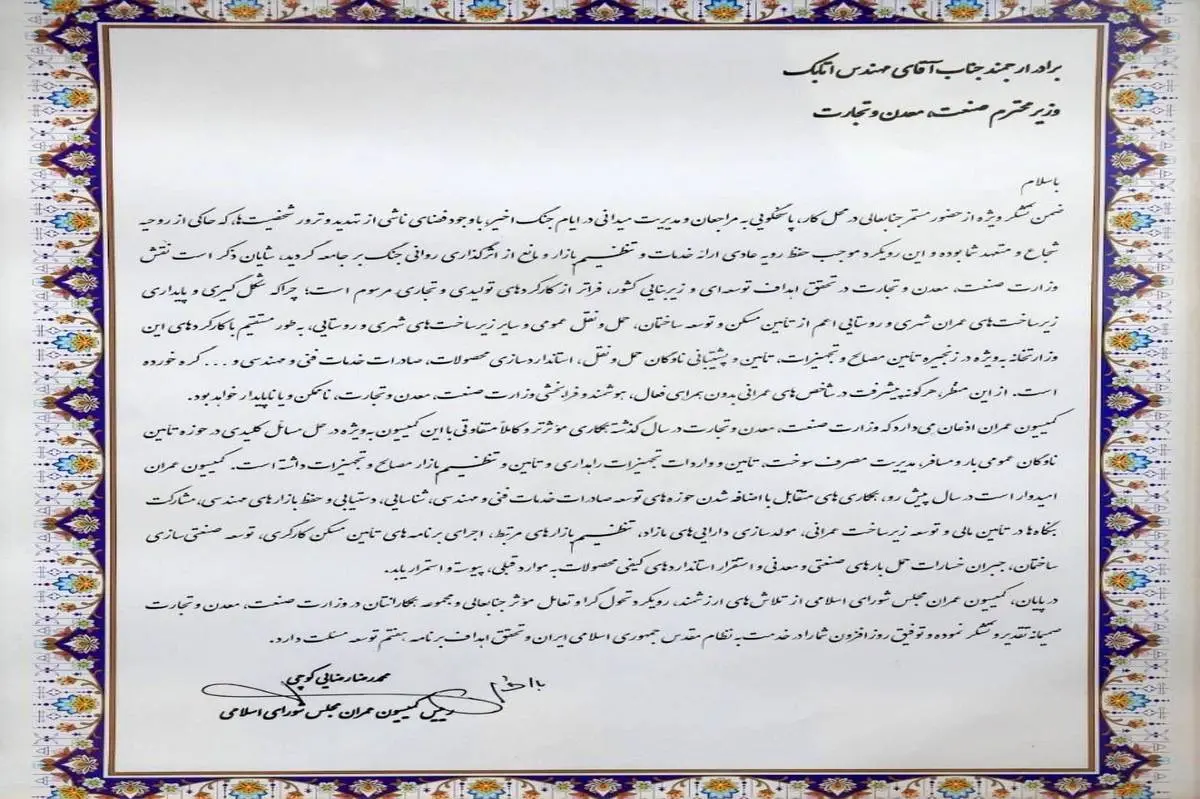 برادر ارجمند جناب آقای مهندس اتابک
وزیر محترم صنعت، معدن و تجارت
باسلام
ضمن تشکر ویژه از حضور مستمر جنابعالی در محل کار، پاسخگویی به مراجعان و مدیریت میدانی در ایام جنگ اخیر، باوجود فضای ناشی از تهدید و ترور شخصیت‌ها، که حاکی از روحیه
شجاع و متعهد شما بوده و این رویکرد موجب حفظ رویه عادی ارائه خدمات و تنظیم بازار و مانع از اثرگذاری روانی جنگ بر جامعه گردید، شایان ذکر است نقش
وزارت صنعت، معدن و تجارت در تحقق اهداف توسعه‌ای و زیربنایی کشور، فراتر از کارکردهای تولیدی و تجاری مرسوم است؛ چراکه شکل‌گیری و پایداری
زیرساخت‌های عمران شهری و روستایی اعم از تأمین مسکن و توسعه ساختمان، حمل‌ونقل عمومی و سایر زیرساخت‌های شهری و روستایی، به‌طور مستقیم با کارکردهای این
وزارتخانه به‌ویژه در زنجیره تأمین مصالح و تجهیزات، تأمین و پشتیبانی ناوگان حمل‌ونقل، استانداردسازی محصولات، صادرات خدمات فنی و مهندسی و ... گره خورده
است. از این منظر، هرگونه پیشرفت در شاخص‌های عمرانی بدون همراهی فعال، هوشمند و فرابخشی وزارت صنعت، معدن و تجارت، ناممکن و یا ناپایدار خواهد بود.
کمیسیون عمران اذعان می‌دارد که وزارت صنعت، معدن و تجارت در سال گذشته همکاری مؤثرتر و کاملاً متفاوتی با این کمیسیون به‌ویژه در حل مسائل کلیدی در حوزه تأمین
ناوگان عمومی بار و مسافر، مدیریت مصرف سوخت، تأمین و واردات تجهیزات راهداری و تأمین و تنظیم بازار مصالح و تجهیزات داشته است. کمیسیون عمران
امیدوار است در سال پیش رو، همکاری‌های متقابل با اضافه شدن حوزه‌های توسعه صادرات خدمات فنی و مهندسی، شناسایی، دستیابی و حفظ بازارهای مهندسی، مشارکت
بنگاه‌ها در تأمین مالی و توسعه زیرساخت عمرانی، مولدسازی دارایی‌های مازاد، تنظیم بازارهای مرتبط، اجرای برنامه‌های تأمین مسکن کارگری، توسعه صنعتی‌سازی
ساختمان، جبران خسارات حمل بارهای صنعتی و معدنی و استقرار استانداردهای کیفی محصولات به موارد قبلی، پیوسته و استمرار یابد.
در پایان، کمیسیون عمران مجلس شورای اسلامی از تلاش‌های ارزشمند، رویکرد تحول‌گرا و تعامل مؤثر جنابعالی و مجموعه همکارانتان در وزارت صنعت، معدن و تجارت
صمیمانه تقدیر و تشکر نموده و توفیق روزافزون شما را در خدمت به نظام مقدس جمهوری اسلامی ایران و تحقق اهداف برنامه هفتم توسعه مسئلت دارد.
محمدرضا رضایی کوچی
رییس کمیسیون عمران مجلس شورای اسلامی